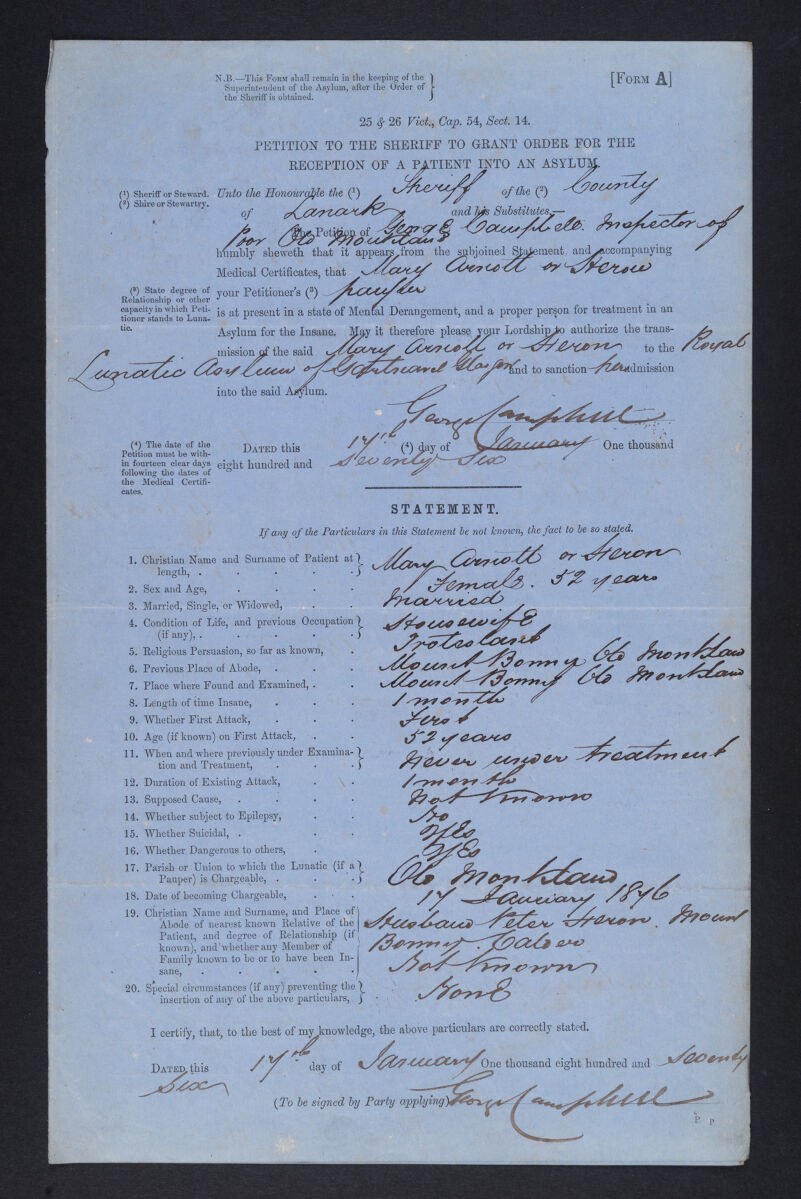 N.B.—This Form shall remain in the keeping of the
Superintendent of the Asylum, after the Order of
the Sheriff is obtained.
[Form A]
25 & 26 Vict., Cap. 54, Sect. 14.
PETITION TO THE SHERIFF TO GRANT ORDER FOR THE
RECEPTION OF A PATIENT INTO AN ASYLUM.
(¹) Sheriff or Steward.
(²) Shire or Stewartry.
Unto the Honourable the (¹) Sheriff of the (²) County
of Lanark and his Substitutes.—
The Petition of George Campbell Inspector of
Poor Old Monkland
humbly sheweth that it appears from the subjoined Statement and accompanying
Medical Certificates, that Mary Arnott or Heron
(³) State degree of
Relationship or other
capacity in which Peti-
tioner stands to Luna-
tic.
your Petitioner's (³) pauper
is at present in a state of Mental Derangement, and a proper person for treatment in an
Asylum for the Insane. May it therefore please your Lordship to authorize the trans-
mission of the said Mary Arnott or Heron to the Royal
Lunatic Asylum of Gartnavel Glasgow and to sanction her admission
into the said Asylum.
George Campbell
(⁴) The date of the
Petition must be with-
in fourteen clear days
following the dates of
the Medical Certifi-
cates.
Dated this 17th (⁴) day of January One thousand
eight hundred and Seventy Six
STATEMENT.
If any of the Particulars in this Statement be not known, the fact to be so stated.
1. Christian Name and Surname of Patient at
length, . . . . . Mary Arnott or Heron
2. Sex and Age, . . . . Female. 52 years
3. Married, Single, or Widowed, . . Married
4. Condition of Life, and previous Occupation
(if any), . . . . . Housewife
5. Religious Persuasion, so far as known, . Protestant
6. Previous Place of Abode, . . . Mount Bonny Old Monkland
7. Place where Found and Examined, . . Mount Bonny Old Monkland
8. Length of time Insane, . . . 1 month
9. Whether First Attack, . . . First
10. Age (if known) on First Attack, . . 52 years
11. When and where previously under Examina-
tion and Treatment, . . . Never under treatment
12. Duration of Existing Attack, . . 1 month
13. Supposed Cause, . . . . Not Known
14. Whether subject to Epilepsy, . . No
15. Whether Suicidal, . . . Yes
16. Whether Dangerous to others, . . Yes
17. Parish or Union to which the Lunatic (if a
Pauper) is Chargeable, . . . Old Monkland
18. Date of becoming Chargeable, . . . 17 January 1876
19. Christian Name and Surname, and Place of
Abode of nearest known Relative of the
Patient, and degree of Relationship (if
known), and whether any Member of
Family known to be or to have been In-
sane, . . . . .
Husband Peter Heron. Mount
Bonny. Calder
Not Known
20. Special circumstances (if any) preventing the
insertion of any of the above particulars, . None
I certify, that, to the best of my knowledge, the above particulars are correctly stated.
Dated this 17th day of January One thousand eight hundred and Seventy
Six
(To be signed by Party applying) George Campbell
P P